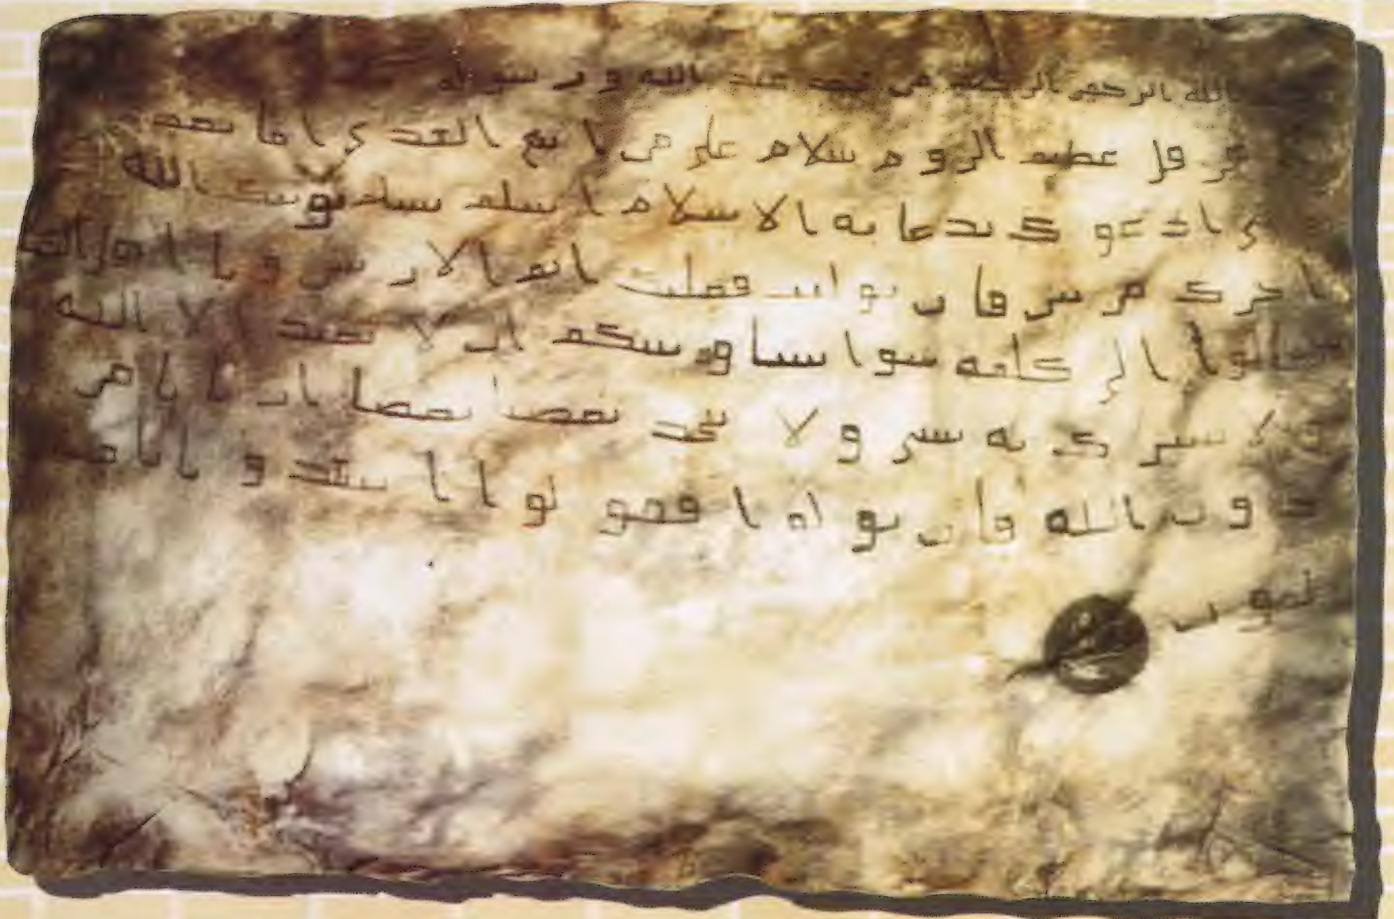 الله الرحمن الرحيم من محمد عبد الله و رسوله
هرقل عظيم الروم سلام على من اتبع الهدى اما بعد
ادعوك بدعايه الاسلام اسلم تسلم يوتك الله
اجرك مرتين فان توليت فعليك اثم الاريسين ويا اهل
تعالوا الى كلمه سوا بيننا وبينكم ان لا نعبد الا الله
ولا نشرك به شي ولا يتخذ بعضنا بعضا اربابا من
دون الله فان تولوا فقولوا اشهدوا بانا مس
لمون